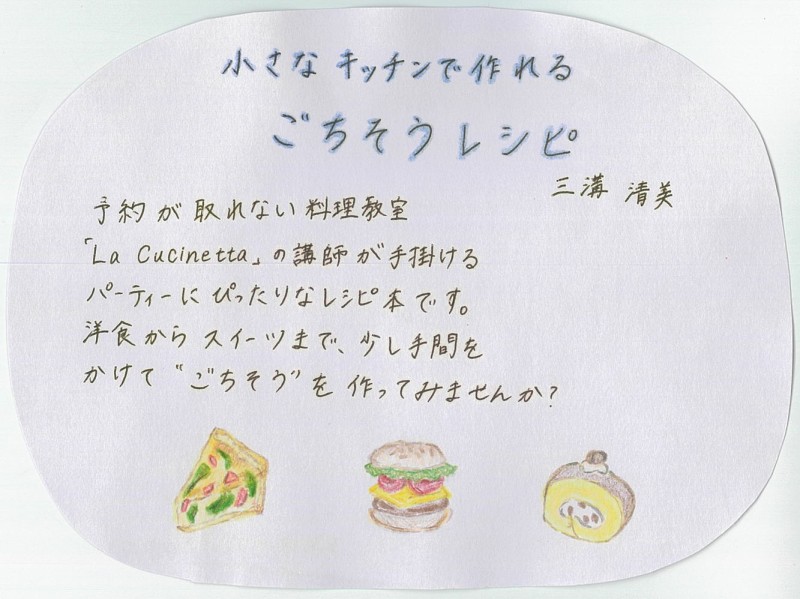 小さなキッチンで作れる
ごちそうレシピ
三溝 清美
予約が取れない料理教室
「La Cucinetta」の講師が手掛ける
パーティーにぴったりなレシピ本です。
洋食からスイーツまで、少し手間を
かけて"ごちそう"を作ってみませんか?